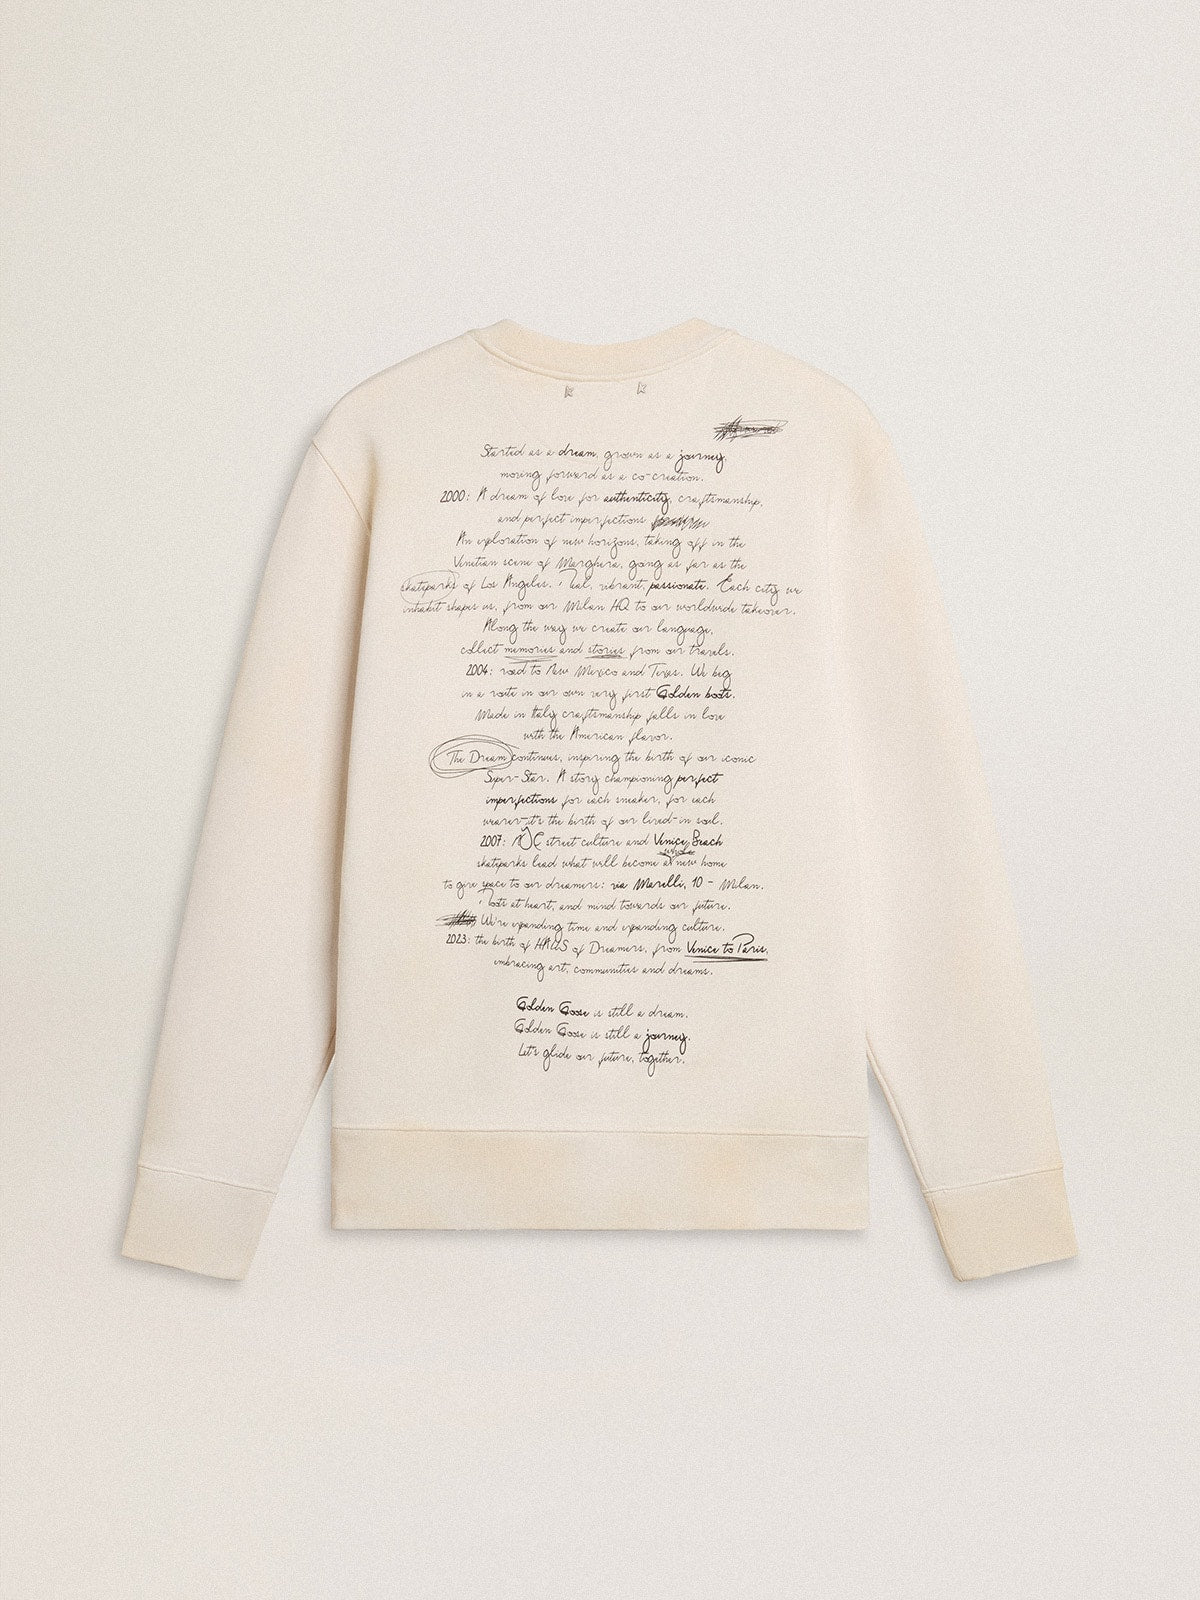 Started as a dream, grown as a journey,
moving forward as a co-creation.
2000: A dream of love for authenticity, craftsmanship,
and perfect imperfections
An exploration of new horizons, taking off in the
Venetian scene of Marghera, going as far as the
skateparks of Los Angeles. Real, vibrant, passionate. Each city we
inhabit shapes us, from our Milan HQ to our worldwide takeover.
Along the way we create our language,
collect memories and stories from our travels.
2004: road to New Mexico and Texas. We beg
in a route in our own very first Golden boots.
Made in Italy craftsmanship falls in love
with the American flavor.
The Dream continues, inspiring the birth of our iconic
Super-Star. A story championing perfect
imperfections for each sneaker, for each
wearer-it's the birth of our lived-in soul.
2007: street culture and Venice Beach
whole
skateparks lead what will become a new home
to give space to our dreamers: via Morelli, 10 - Milan.
Roots at heart, and mind towards our future.
We're expanding time and expanding culture.
2023: the birth of HAUS of Dreamers, from Venice to Paris,
embracing art, communities and dreams.
Golden Goose is still a dream.
Golden Goose is still a journey.
Let's glide our future, together.